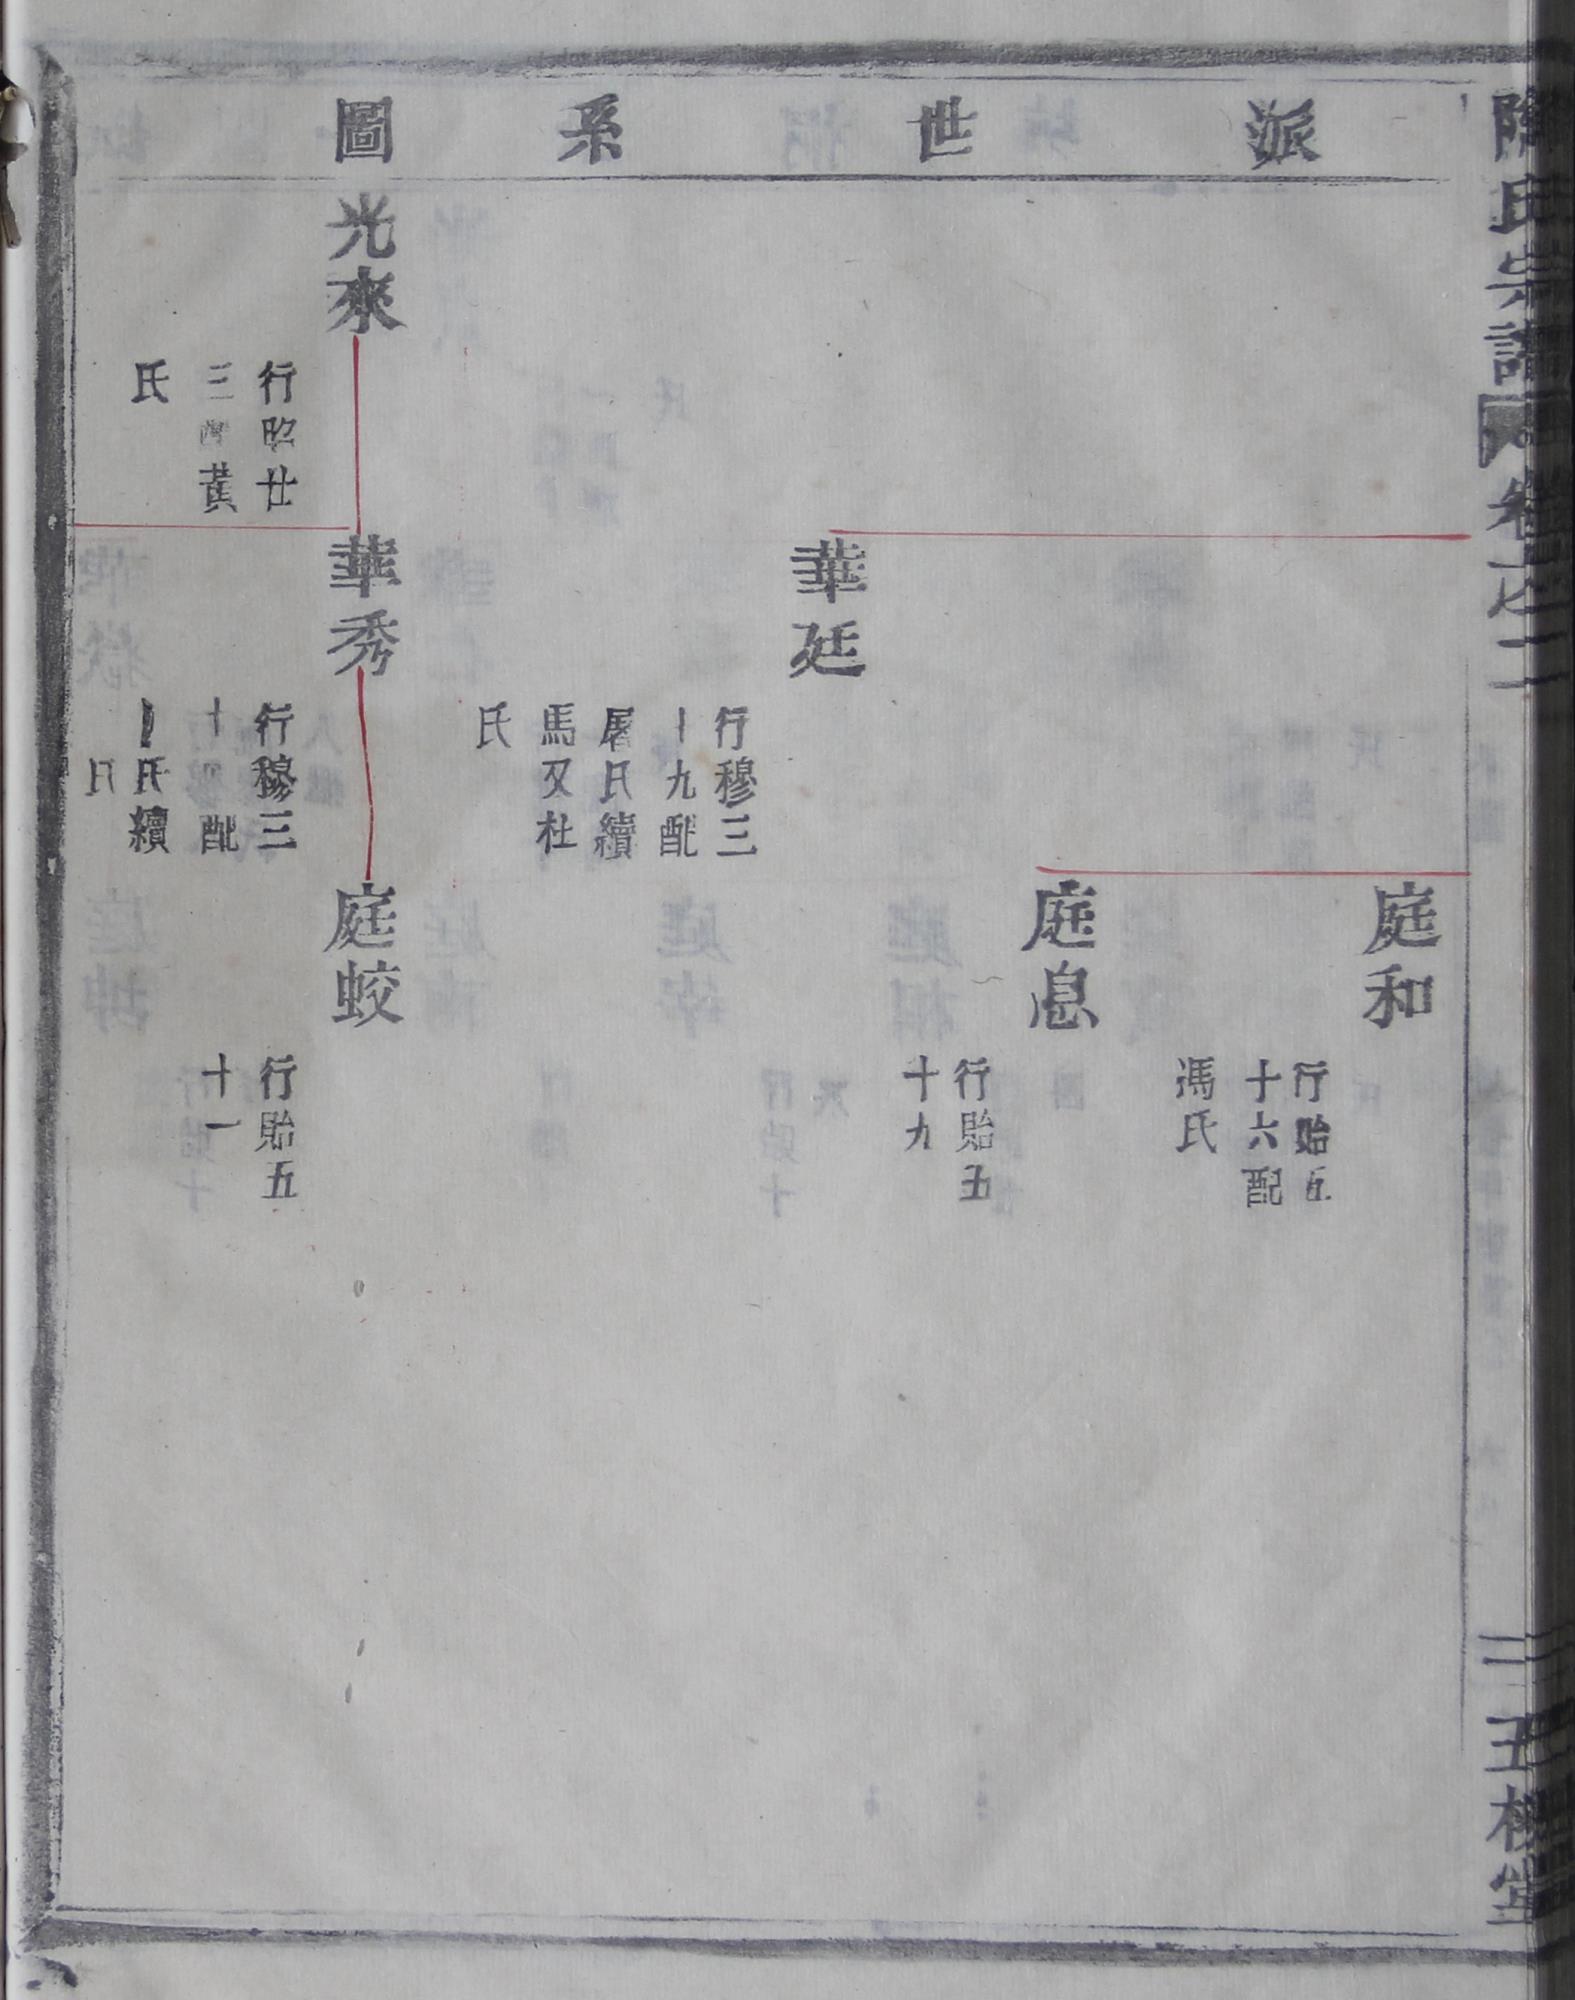 氏宗譜 卷之二
派世系圖
庭和
行貽五
十六配
馮氏
庭息
行貽五
十九
華廷
行穆三
十九配
屠氏續
馬又杜
氏
光來
行昭廿
三配黃
氏
華秀
行穆三
十 配
氏續
氏
庭蛟
行貽五
十一